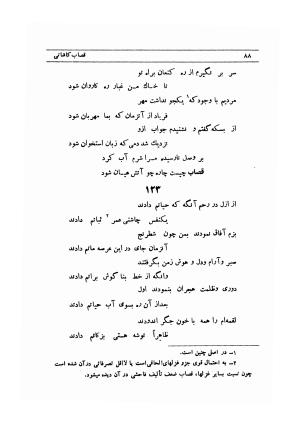 ۸۸ قصاب کاشانی
سر بر نگیرم از ره کنعان براه تو
تا خاك من غبار ره کاروان شود
مردیم با وجود که۱ یکجو نداشت مهر
فریاد از آنزمان که بما مهربان شود
از بسکه گفتم و نشنیدم جواب ازو
نزدیك شد دمی که زبان استخوان شود
بر وصل نارسیده مرا شرم آب کرد
قصاب چیست چاره چو آتش عیان شود
۱۲۳
از ازل در رحم آنگه که حیاتم دادند
یکنفس چاشنی عمر۲ ثباتم دادند
بزم آفاق نمودند بمن چون شطرنج
آنزمان جای در این عرصه ماتم دادند
صبر و آرام و دل و هوش زمن بگرفتند
وانگه از خط بناگوش براتم دادند
دوری و ظلمت هجران بنمودند اول
بعد از آن ره بسوی آب حیاتم دادند
لقمه‌ام را همه با خون جگر اندودند
ظاهراً توشه هستی بزکاتم دادند
۱ـ در اصل چنین است.
۲ـ به احتمال قوی جزو غزلهای الحاقی است یا لااقل تصرفاتی در آن شده است
چون نسبت بسایر غزلها، قصاب ضعف تألیف فاحشی در آن دیده میشود.